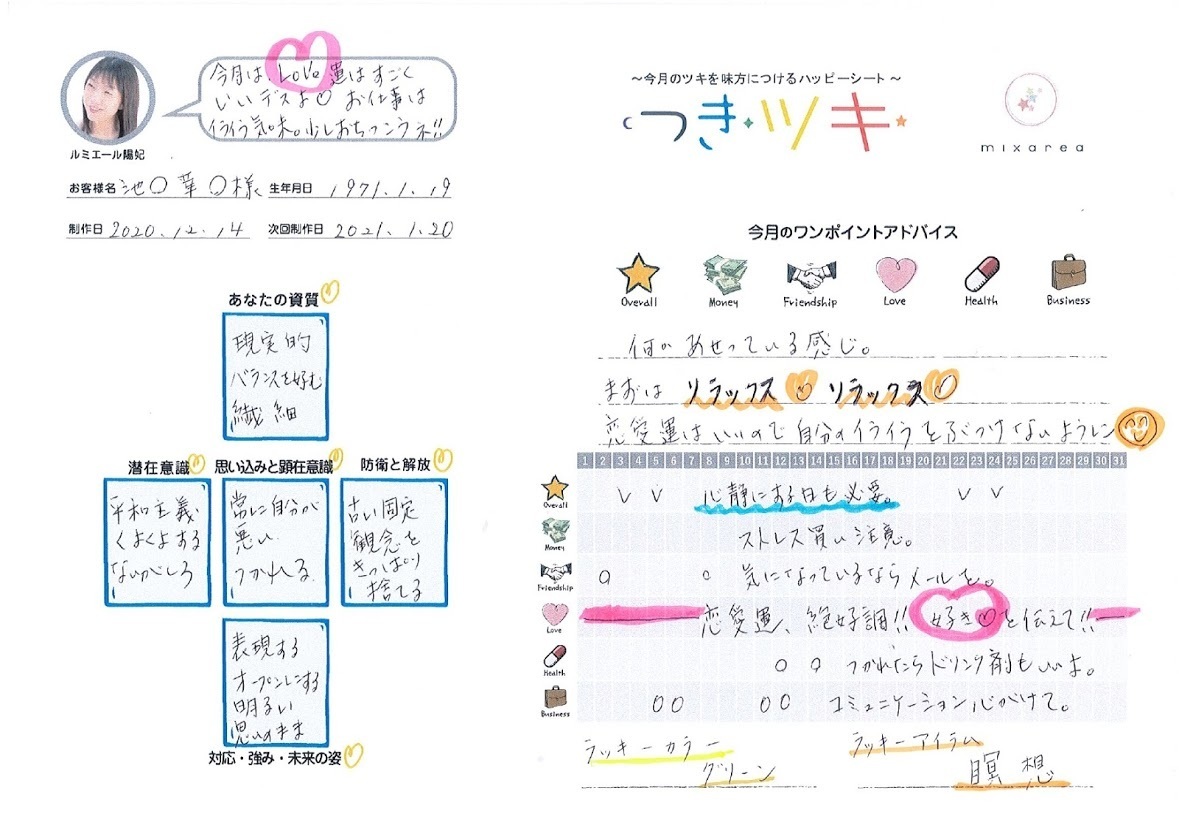 今月は、Love運はすごく
いいデスよ♡ お仕事は
イライラ気味。少しおちつこうネ!!
ルミエール陽妃
お客様名 池〇 華〇様 生年月日 1971.1.19
制作日 2020.12.14 次回制作日 2021.1.20
あなたの資質
現実的
バランスを好む
繊細
潜在意識
平和主義
くよくよする
ないがしろ
思い込みと顕在意識
常に自分が
悪い
つかれる
防衛と解放
古い固定
観念を
きっぱり
捨てる
表現する
オープンにする
明るい
思いのまま
対応・強み・未来の姿
～今月のツキを味方につけるハッピーシート～
つき・ツキ
mixarea
今月のワンポイントアドバイス
Overall Money Friendship Love Health Business
何かあせっている感じ。
まずは リラックス♡ リラックス♡
恋愛運はいいので自分のイライラをぶつけないようにン
1 2 3 4 5 6 7 8 9 10 11 12 13 14 15 16 17 18 19 20 21 22 23 24 25 26 27 28 29 30 31
Overall ∨ ∨ 心静にする日も必要。 ∨ ∨
Money ストレス買い注意。
Friendship ○ ○ 気になっているならメールを。
Love 恋愛運、絶好調!! 好き♡と伝えて!!
Health ○ ○ つかれたらドリンク剤もいいよ。
Business ○○ ○○ コミュニケーション心がけて。
ラッキーカラー
グリーン
ラッキーアイテム
瞑想